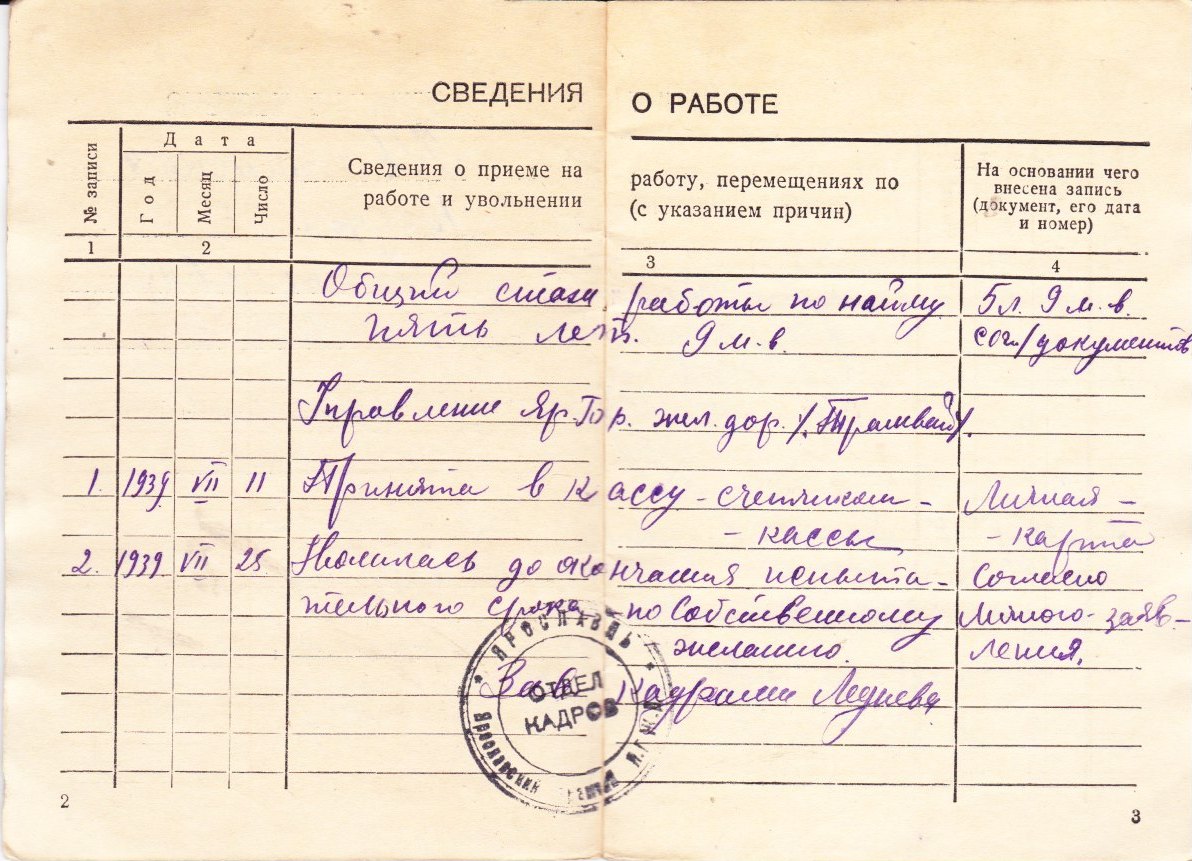 СВЕДЕНИЯ О РАБОТЕ
№ записи
Дата
Год
Месяц
Число
Сведения о приеме на работу, перемещениях по
работе и увольнении (с указанием причин)
На основании чего
внесена запись
(документ, его дата
и номер)
1 2 3 4
Общий стаж работы по найму 5 л. 9 м-в.
пять лет. 9 м-в. согл/документов
Управление Яр. Гор. жел. дор. /.Трамвай/.
1. 1939 VII 11 Принята в кассу - счетчиком - Личная -
- кассы - карта
2. 1939 VII 25 Уволилась до окончания испыта- Согласно
тельного срока по собственному Личного - заяв-
желанию. ления.
Зав. Кадрами Леднева
ЯРОСЛАВЛЬ
ОТДЕЛ
КАДРОВ
Ярославский
2
3